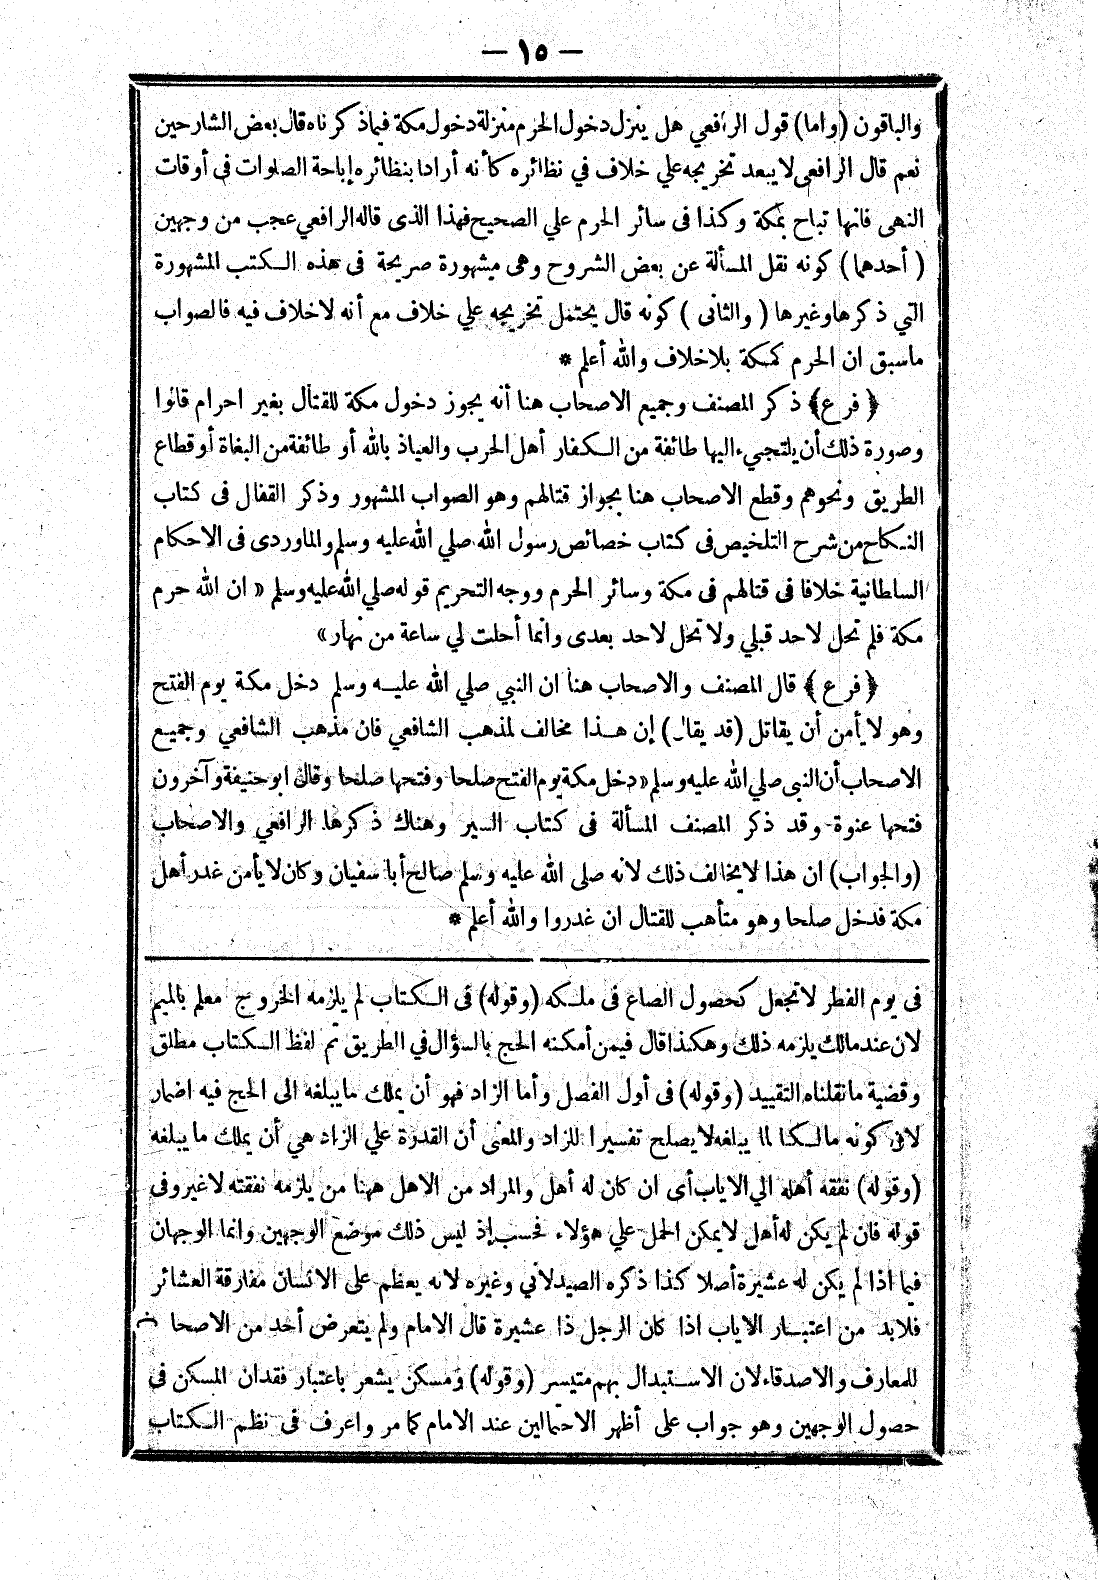 — ١٥ —
والباقون (واما) قول الرافعي هل ينزل دخول الحرم منزلة دخول مكة فيما ذكرناه قال بعض الشارحين
نعم قال الرافعي لا يبعد تخريجه علي خلاف في نظائره كأنه أراد بنظائره إباحة الصلوات في أوقات
النهى فانها تباح بمكة وكذا فى سائر الحرم علي الصحيح فهذا الذى قاله الرافعي عجب من وجهين
(أحدهما) كونه نقل المسألة عن بعض الشروح وهى مشهورة صريحة فى هذه الكتب المشهورة
التي ذكرها وغيرها (والثانى) كونه قال يحتمل تخريجه علي خلاف مع أنه لا خلاف فيه فالصواب
ماسبق ان الحرم كمكة بلا خلاف والله أعلم *
﴿فرع﴾ ذكر المصنف وجميع الاصحاب هنا أنه يجوز دخول مكة للقتال بغير احرام قالوا
وصورة ذلك أن يلتجيء اليها طائفة من الكفار أهل الحرب والعياذ بالله أو طائفة من البغاة أو قطاع
الطريق ونحوهم وقطع الاصحاب هنا بجواز قتالهم وهو الصواب المشهور وذكر القفال فى كتاب
النكاح من شرح التلخيص فى كتاب خصائص رسول الله صلي الله عليه وسلم والماوردى فى الاحكام
السلطانية خلافا فى قتالهم فى مكة وسائر الحرم ووجه التحريم قوله صلي الله عليه وسلم « ان الله حرم
مكة فلم تحل لاحد قبلي ولا تحل لاحد بعدى وانما أحلت لي ساعة من نهار»
﴿فرع﴾ قال المصنف والاصحاب هنا ان النبي صلي الله عليه وسلم دخل مكة يوم الفتح
وهو لا يأمن أن يقاتل (قد يقال) إن هذا مخالف لمذهب الشافعي فان مذهب الشافعي وجميع
الاصحاب أن النبى صلي الله عليه وسلم «دخل مكة يوم الفتح صلحا وفتحها صلحا وقال ابو حنيفة وآخرون
فتحها عنوة وقد ذكر المصنف المسألة فى كتاب السير وهناك ذكرها الرافعي والاصحاب
(والجواب) ان هذا لا يخالف ذلك لانه صلى الله عليه وسلم صالح أبا سفيان وكان لا يأمن غدر أهل
مكة فدخل صلحا وهو متأهب للقتال ان غدروا والله أعلم *
فى يوم الفطر لا تجعل كحصول الصاع فى ملكه (وقوله) فى الكتاب لم يلزمه الخروج معلم بالميم
لان عند مالك يلزمه ذلك وهكذا قال فيمن أمكنه الحج بالسؤال في الطريق ثم لفظ الكتاب مطلق
وقضية ما نقلناه التقييد (وقوله) فى أول الفصل وأما الزاد فهو أن يملك ما يبلغه الى الحج فيه اضمار
لان كونه مالكا لما يبلغه لا يصلح تفسيرا للزاد والمعنى أن القدرة علي الزاد هي أن يملك ما يبلغه
(وقوله) نفقة أهله الي الاياب أى ان كان له أهل والمراد من الاهل ههنا من يلزمه نفقته لا غير وفى
قوله فان لم يكن له أهل لا يمكن الحمل علي هؤلاء فحسب إذ ليس ذلك موضع الوجهين وانما الوجهان
فيما اذا لم يكن له عشيرة أصلا كذا ذكره الصيدلاني وغيره لانه يعظم على الانسان مفارقة العشائر
فلابد من اعتبار الاياب اذا كان الرجل ذا عشيرة قال الامام ولم يتعرض أحد من الاصحاب
للمعارف والاصدقاء لان الاستبدال بهم متيسر (وقوله) ومسكن يشعر باعتبار فقدان المسكن فى
حصول الوجهين وهو جواب على أظهر الاحتمالين عند الامام كما مر واعرف فى نظم الكتاب